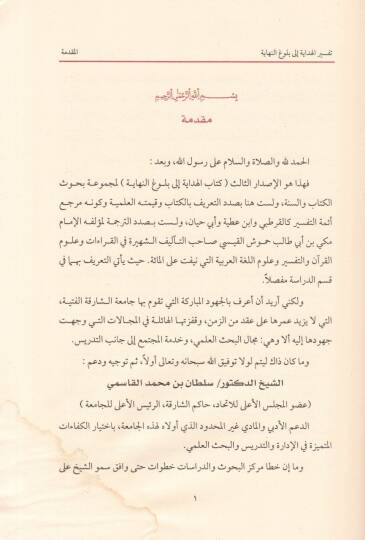 تفسير الهداية إلى بلوغ النهاية
المقدمة
بسم الله الرحمن الرحيم
مقدمة
الحمد لله والصلاة والسلام على رسول الله، وبعد :
فهذا هو الإصدار الثالث ( كتاب الهداية إلى بلوغ النهاية ) لمجموعة بحوث
الكتاب والسنة، ولست هنا بصدد التعريف بالكتاب وقيمته العلمية وكونه مرجع
أئمة التفسير كالقرطبي وابن عطية وأبي حيان، ولست بصدد الترجمة لمؤلفه الإمام
مكي بن أبي طالب حموش القيسي صاحب التآليف الشهيرة في القراءات وعلوم
القرآن والتفسير وعلوم اللغة العربية التي نيفت على المائة. حيث يأتي التعريف بهما في
قسم الدراسة مفصلاً.
ولكني أريد أن أعرف بالجهود المباركة التي تقوم بها جامعة الشارقة الفتية،
التي لا يزيد عمرها على عقد من الزمن، وقفزتها الهائلة في المجالات التي وجهت
جهودها إليه ألا وهي: مجال البحث العلمي، وخدمة المجتمع إلى جانب التدريس.
وما كان ذاك ليتم لولا توفيق الله سبحانه وتعالى أولاً، ثم توجيه ودعم :
الشيخ الدكتور/ سلطان بن محمد القاسمي
(عضو المجلس الأعلى للاتحاد، حاكم الشارقة، الرئيس الأعلى للجامعة )
الدعم الأدبي والمادي غير المحدود الذي أولاه لهذه الجامعة، باختيار الكفاءات
المتميزة في الإدارة والتدريس والبحث العلمي.
وما إن خطا مركز البحوث والدراسات خطوات حتى وافق سمو الشيخ على
١